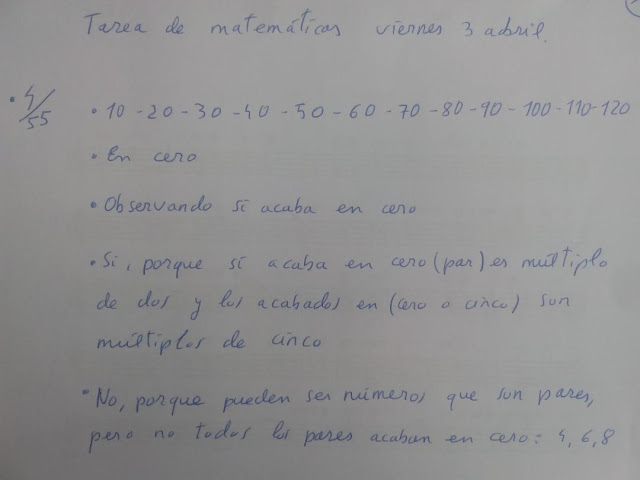 Tarea de matemáticas viernes 3 abril.
• 4/55 • 10 - 20 - 30 - 40 - 50 - 60 - 70 - 80 - 90 - 100 - 110 - 120
• En cero
• Observando si acaba en cero
• Si, porque si acaba en cero (par) es múltiplo
de dos y los acabados en (cero o cinco) son
múltiplos de cinco
• No, porque pueden ser números que son pares,
pero no todos los pares acaban en cero: 4, 6, 8